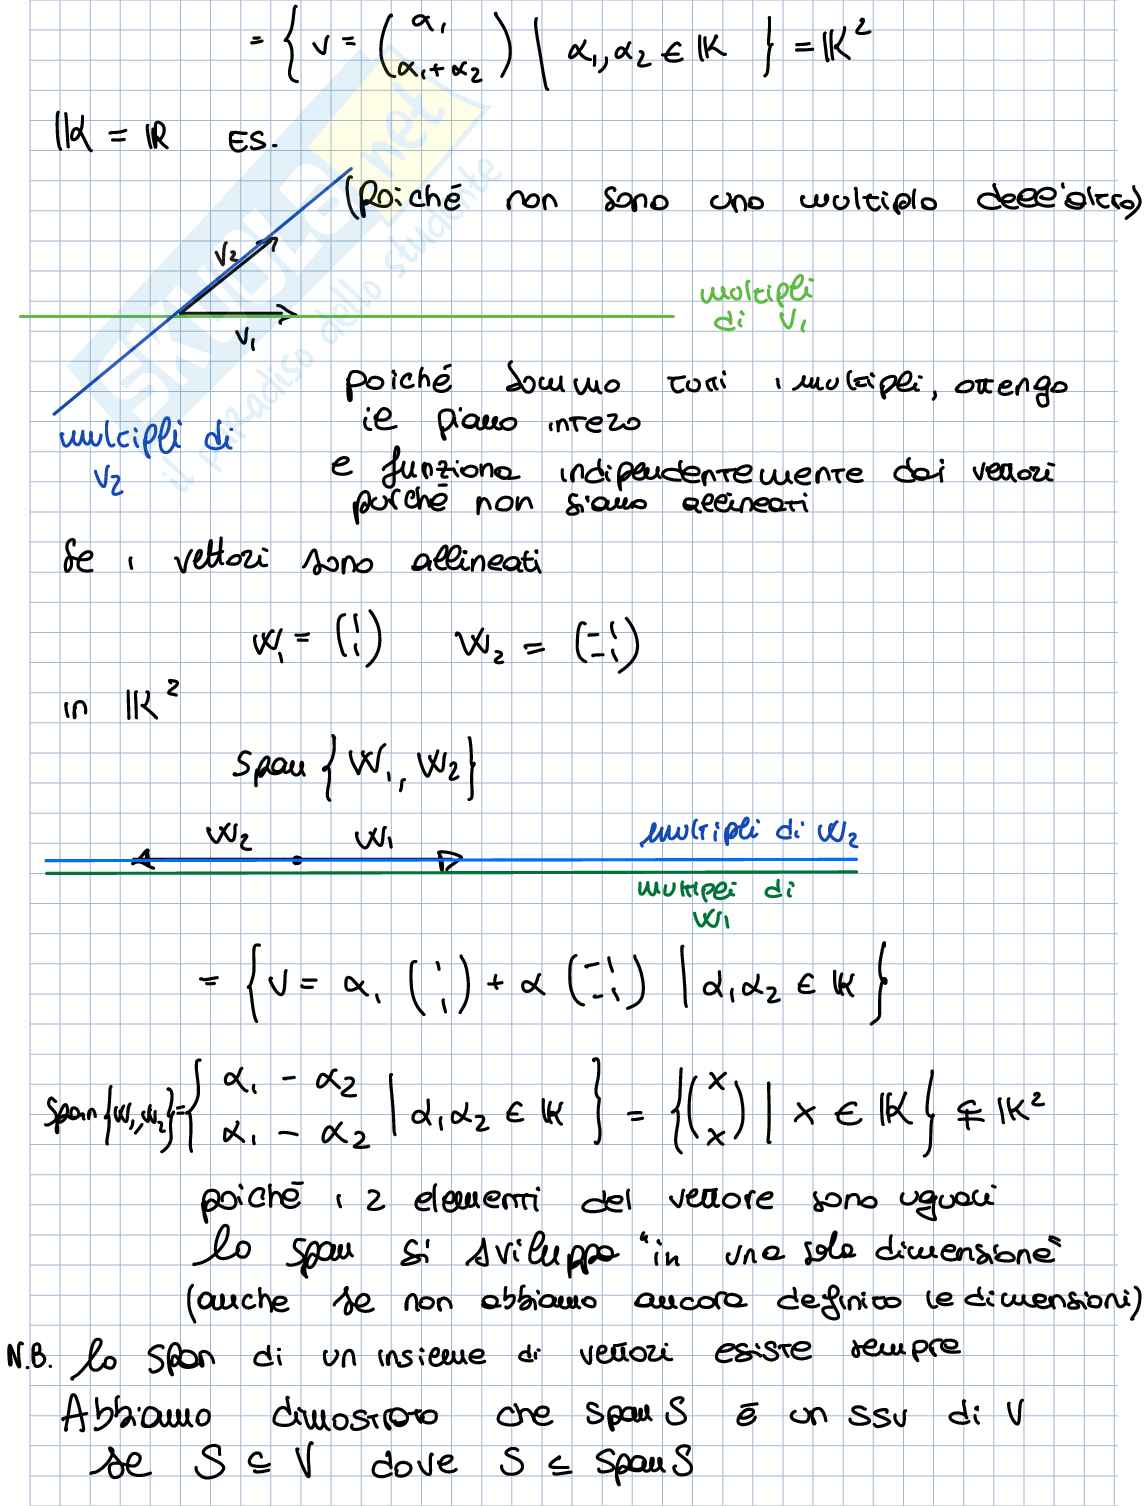 = { v = ( α₁ α₁+α₂ ) | α₁,α₂ ∈ 𝕂 } = 𝕂²
𝕂 = ℝ ES.
(Poiché non sono uno multiplo dell'altro)
v₂
v₁
multipli di v₁
poiché sommo tutti i multipli, ottengo
il piano intero
multipli di v₂
e funziona indipendentemente dai vettori
purché non siano allineati
Se i vettori sono allineati
w₁ = ( 1 1 ) w₂ = ( -1 -1 )
in 𝕂²
Span { w₁, w₂ }
w₂ w₁ multipli di w₂
multipli di w₁
= { v = α₁ ( 1 1 ) + α ( -1 -1 ) | α₁α₂ ∈ 𝕂 }
Span {w₁,w₂} = { α₁ - α₂ α₁ - α₂ | α₁α₂ ∈ 𝕂 } = { ( x x ) | x ∈ 𝕂 } ⊊ 𝕂²
poiché i 2 elementi del vettore sono uguali
lo span si sviluppa "in una sola dimensione"
(anche se non abbiamo ancora definito le dimensioni)
N.B. lo span di un insieme di vettori esiste sempre
Abbiamo dimostrato che span S è un ssv di V
se S ⊆ V dove S ⊆ Span S
SKUOLA.net
il paradiso dello studente